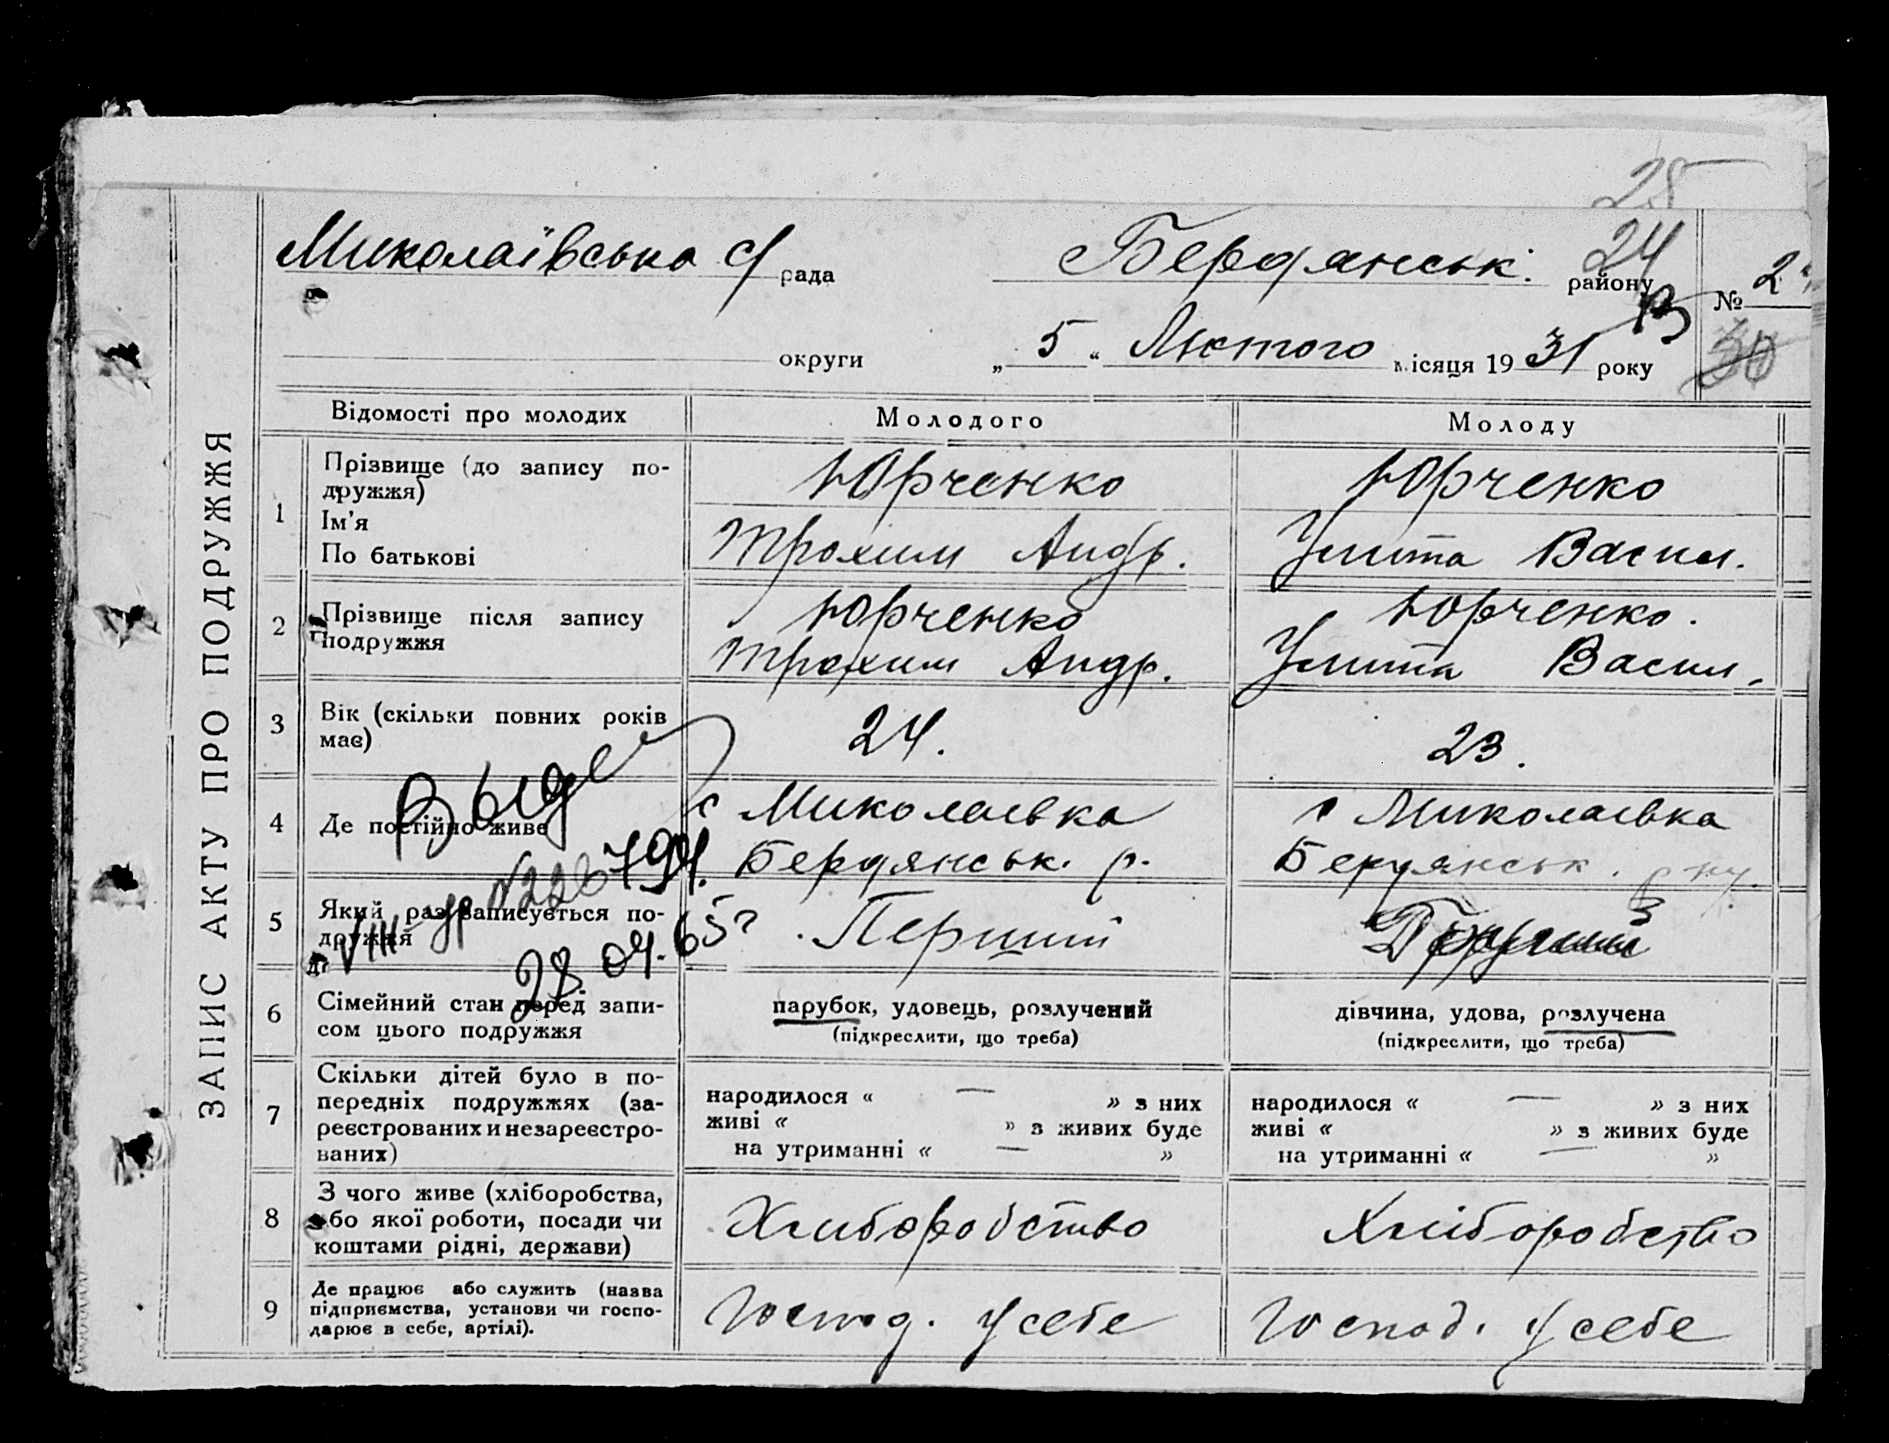 25
Миколаївська с/рада Бердянськ. району 24
№ 24
округи „5“ Лютого місяця 1931 року
30
ЗАПИС АКТУ ПРО ПОДРУЖЖЯ
Відомості про молодих Молодого Молоду
1 Прізвище (до запису по-
дружжя)
Ім'я
По батькові
Юрченко Юрченко
Трохим Андр. Улита Васил.
2 Прізвище після запису
подружжя
Юрченко Юрченко.
Трохим Андр. Улита Васил.
3 Вік (скільки повних років
має)
24. 23.
4 Де постійно живе
с Миколаевка с Миколаевка
Бердянськ. р. Бердянськ. р-ну.
5 Який раз записується по-
дружжя
Перший
VIII-УР №226794.
28.04.65г
6 Сімейний стан перед запи-
сом цього подружжя
парубок, удовець, розлучений дівчина, удова, розлучена
(підкреслити, що треба) (підкреслити, що треба)
7 Скільки дітей було в по-
передніх подружжях (за-
реєстрованих и незареєстро-
ваних)
народилося « — » з них народилося « — » з них
живі « » з живих буде живі « » з живих буде
на утриманні « — » на утриманні « — »
8 З чого живе (хліборобства,
або якої роботи, посади чи
коштами рідні, держави)
Хліборобство Хліборобство
9 Де працює або служить (назва
підприємства, установи чи госпо-
дарює в себе, артілі).
Господ. у себе Господ. у себе